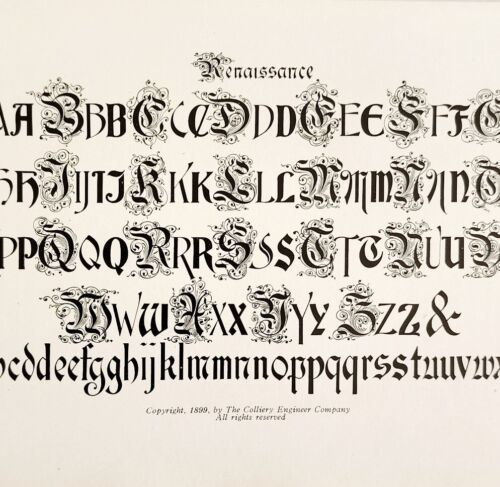 Renaissance.
AA BBB CCC DDD EEE FFF
HH IIJIJ KKK LLL MMM NNN
PP QQQ RRR SSS TTT UUU
WWW XXX YYY ZZZ &
bcddeefgghijjklmmnnoppqqrsstuuvwx
Copyright, 1899, by The Colliery Engineer Company
All rights reserved